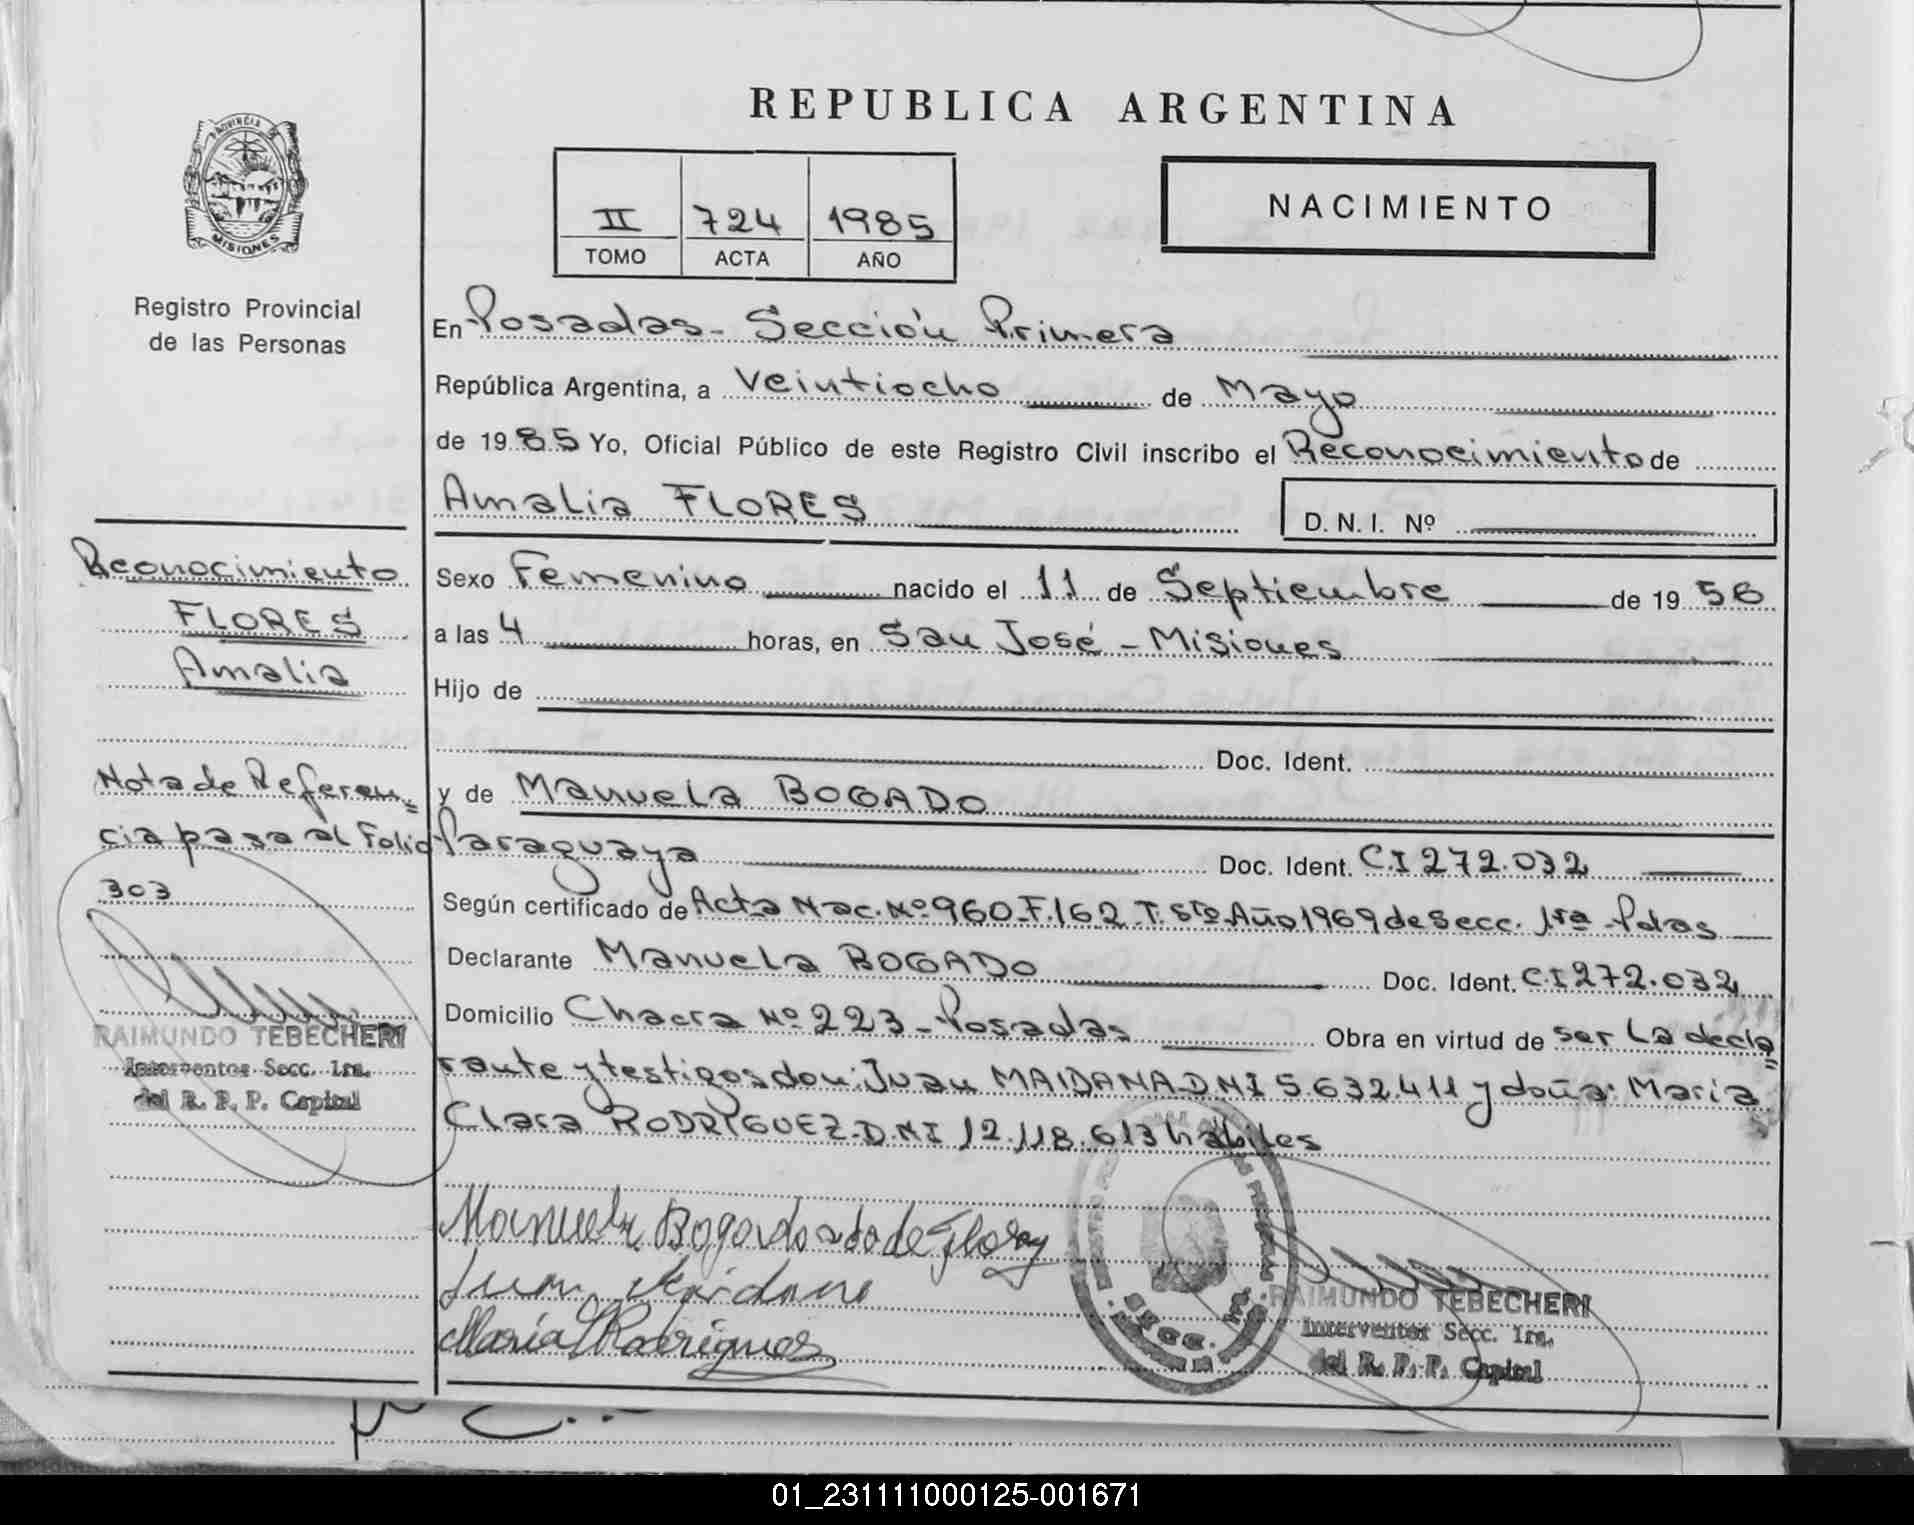 REPUBLICA ARGENTINA
PROVINCIA DE
MISIONES
Registro Provincial
de las Personas
II 724 1985
TOMO ACTA AÑO
NACIMIENTO
En Posadas - Sección Primera
República Argentina, a Veintiocho de Mayo
de 1985 Yo, Oficial Público de este Registro Civil inscribo el Reconocimiento de
Amalia FLORES D. N. I. Nº
Reconocimiento
FLORES
Amalia
Sexo Femenino nacido el 11 de Septiembre de 19 56
a las 4 horas, en San José - Misiones
Hijo de
Doc. Ident.
Nota de Referen=
cia pasa al Folio
303
y de Manuela BOGADO
Paraguaya Doc. Ident. C.I 272.032
Según certificado de Acta Nac. Nº 960 F.162 T. 5to Año 1969 de Secc. 1ra - Pdas
Declarante Manuela BOGADO Doc. Ident. C.I 272.032
Domicilio Chacra Nº 223 - Posadas Obra en virtud de ser la decla=
rante y testigos don: Juan MAIDANA DNI 5.632.411 y doña: Maria
Clara RODRÍGUEZ - DNI 12.118.613 habiles
RAIMUNDO TEBECHERI
Interventor Secc. 1ra.
del R. P. P. Capital
Manuela Bogado de Flores
Juan Maidana
María Rodriguez
RAIMUNDO TEBECHERI
Interventor Secc. 1ra.
del R. P. P. Capital
01_231111000125-001671